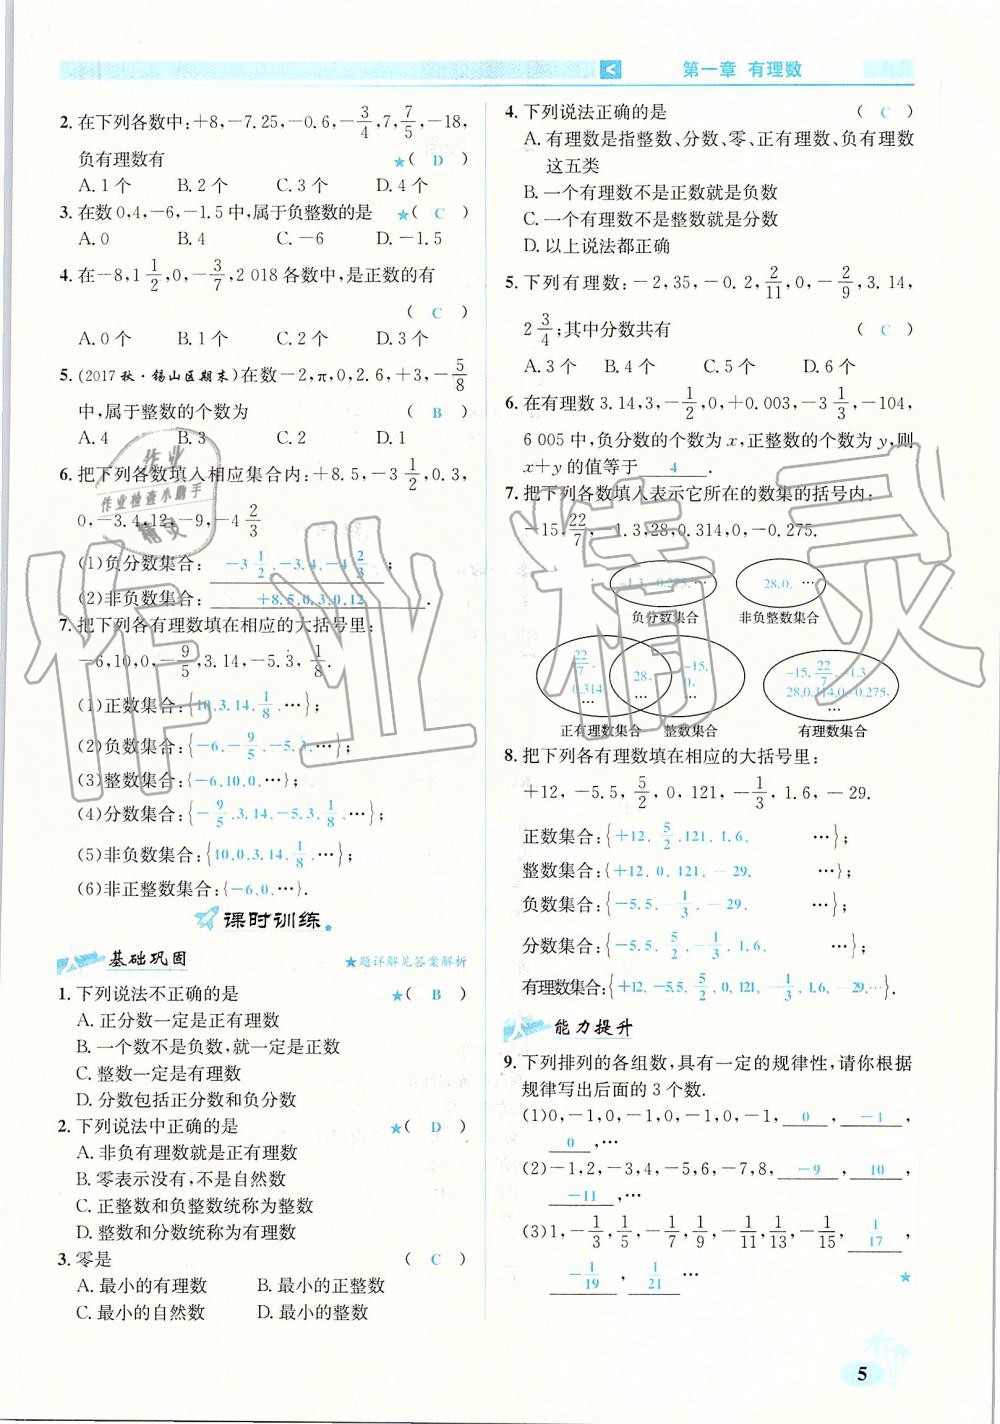 第一章 有理数
2. 在下列各数中:+8,-7.25,-0.6,-3/4,7,7/5,-18,
负有理数有 ★( D )
A. 1个 B. 2个 C. 3个 D. 4个
3. 在数0,4,-6,-1.5中,属于负整数的是 ★( C )
A. 0 B. 4 C. -6 D. -1.5
4. 在-8,1 1/2,0,-3/7,2 018各数中,是正数的有
( C )
A. 0个 B. 1个 C. 2个 D. 3个
5. (2017秋·锡山区期末)在数-2,π,0,2.6,+3,-5/8
中,属于整数的个数为 ( B )
A. 4 B. 3 C. 2 D. 1
6. 把下列各数填入相应集合内:+8.5,-3 1/2,0.3,
0,-3.4,12,-9,-4 2/3
(1)负分数集合: -3 1/2,-3.4,-4 2/3 ;
(2)非负数集合: +8.5,0.3,0,12 .
7. 把下列各有理数填在相应的大括号里:
-6,10,0,-9/5,3.14,-5.3,1/8.
(1)正数集合:{10,3.14,1/8,…};
(2)负数集合:{-6,-9/5,-5.3,…};
(3)整数集合:{-6,10,0,…};
(4)分数集合:{-9/5,3.14,-5.3,1/8,…};
(5)非负数集合:{10,0,3.14,1/8,…};
(6)非正整数集合:{-6,0,…}.
课时训练
基础巩固 ★题详解见答案解析
1. 下列说法不正确的是 ★( B )
A. 正分数一定是正有理数
B. 一个数不是负数,就一定是正数
C. 整数一定是有理数
D. 分数包括正分数和负分数
2. 下列说法中正确的是 ★( D )
A. 非负有理数就是正有理数
B. 零表示没有,不是自然数
C. 正整数和负整数统称为整数
D. 整数和分数统称为有理数
3. 零是 ( C )
A. 最小的有理数 B. 最小的正整数
C. 最小的自然数 D. 最小的整数
4. 下列说法正确的是 ( C )
A. 有理数是指整数、分数、零、正有理数、负有理数
这五类
B. 一个有理数不是正数就是负数
C. 一个有理数不是整数就是分数
D. 以上说法都正确
5. 下列有理数:-2,35,-0.2,2/11,0,-2/9,3.14,
2 3/4;其中分数共有 ( C )
A. 3个 B. 4个 C. 5个 D. 6个
6. 在有理数3.14,3,-1/2,0,+0.003,-3 1/3,-104,
6 005中,负分数的个数为x,正整数的个数为y,则
x+y的值等于 4 .
7. 把下列各数填入表示它所在的数集的括号内:
-15,22/7,-1.3,28,0.314,0,-0.275.
-1.3,-0.275,… 28,0,…
负分数集合 非负整数集合
22/7, 0.314 … 28, … -15, 0, …
-15,22/7,-1.3, 28,0.314,0,-0.275, …
正有理数集合 整数集合 有理数集合
8. 把下列各有理数填在相应的大括号里:
+12,-5.5,5/2,0,121,-1/3,1.6,-29.
正数集合:{+12,5/2,121,1.6, …};
整数集合:{+12,0,121,-29, …};
负数集合:{-5.5,-1/3,-29, …};
分数集合:{-5.5,5/2,-1/3,1.6, …};
有理数集合:{+12,-5.5,5/2,0,121,-1/3,1.6,-29,…}.
能力提升
9. 下列排列的各组数,具有一定的规律性,请你根据
规律写出后面的3个数.
(1)0,-1,0,-1,0,-1,0,-1, 0 , -1 ,
0 ,…
(2)-1,2,-3,4,-5,6,-7,8, -9 , 10 ,
-11 ,…
(3)1,-1/3,1/5,-1/7,1/9,-1/11,1/13,-1/15, 1/17 ,
-1/19 , 1/21 … ★
5
作业精灵
作业
作业检查小助手
精灵